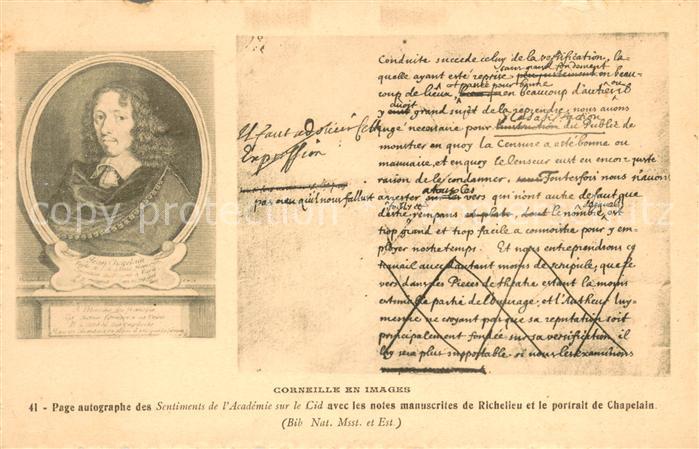 Conduite succede celuy de la versification, la-
quelle ayant esté reprise sans grand fondement
et passée pour bonne
coup de lieux en beaucoup d'autres où il
y avoit grand sujet de la reprendre, nous avons
jugé necessaire pour la satisfaction du Public de
monstrer en quoy la Censure a esté bonne ou
mauvaise, et en quoy le Censeur eust eu encor juste
raison de le condamner. Toutefois nous n'avons
pas creu qu'il nous fallust arrester a tous les vers qui n'ont autre defaut que
d'estre rempans le nombre est
trop grand et trop facile a connoistre pour y em-
ployer nostre temps. Et nous entreprendrons ce
travail avec d'autant moins de scrupule, que le
vers dans les Pieces de theatre estant la moins
estimée partie de l'ouvrage, et l'Autheur luy-
mesme ne croyant pas que sa reputation soit
principalement fondée sur sa versification il
luy sera plus supportable si nous les examinons
Il faut adoucir cette
Expression
Jean Chapelain
CORNEILLE EN IMAGES
41 - Page autographe des Sentiments de l'Académie sur le Cid avec les notes manuscrites de Richelieu et le portrait de Chapelain.
(Bib Nat. Msst. et Est.)
copyright